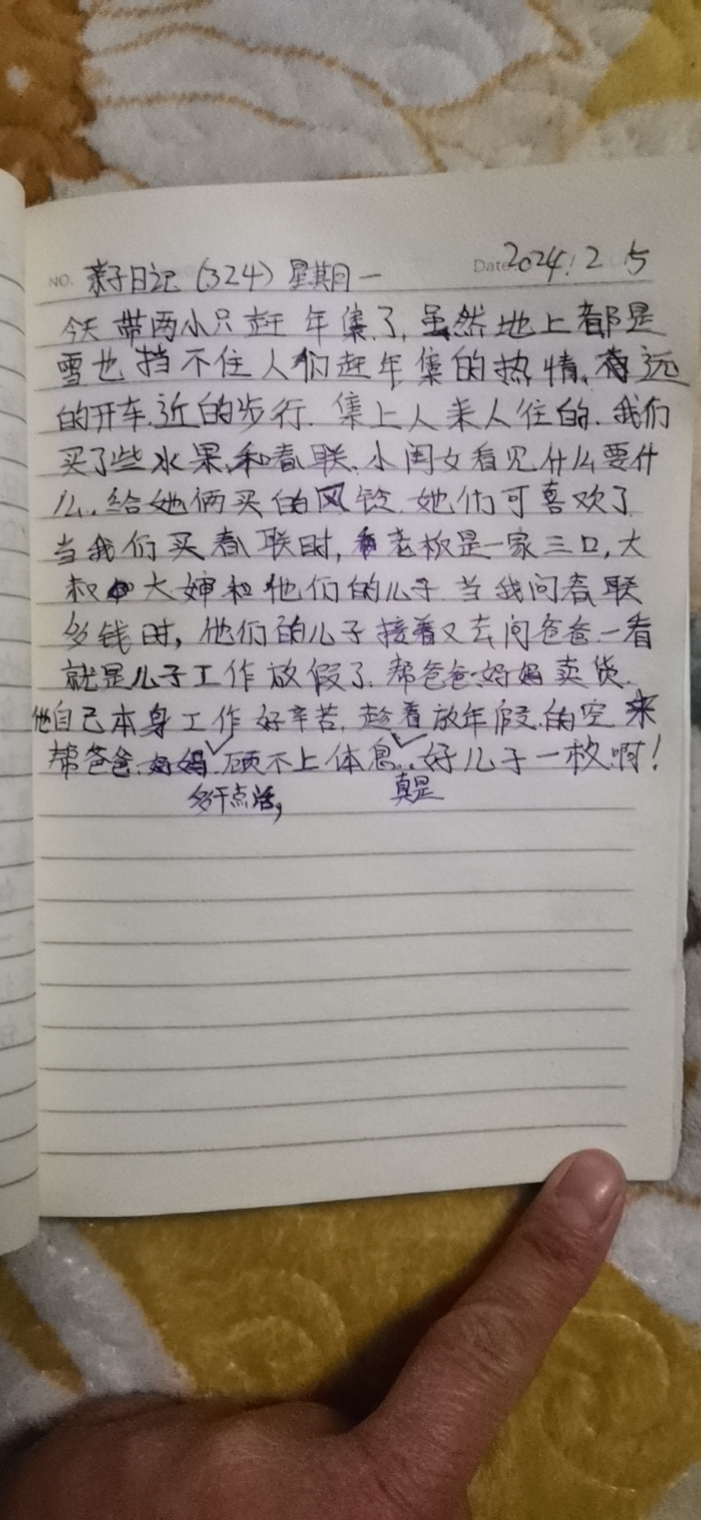 NO. 亲子日记（324）星期一 Date 2024.2.5
今天带两小只赶年集了,虽然地上都是
雪也挡不住人们赶年集的热情,有远
的开车,近的步行.集上人来人往的.我们
买了些水果,和春联.小闺女看见什么要什
么,给她俩买的风铃.她们可喜欢了
当我们买春联时,老板是一家三口,大
叔 大婶和他们的儿子.当我问春联
多钱时,他们的儿子接着又去问爸爸一看
就是儿子工作放假了.帮爸爸妈妈卖货.
他自己本身工作好辛苦.趁着放年假的空来
帮爸爸妈妈 顾不上体息..好儿子一枚啊!
多干点活, 真是